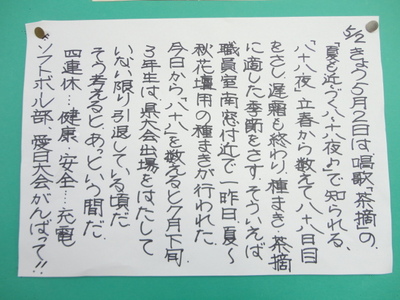 5/2
きょう5月2日は、唱歌「茶摘」の、
「夏も近づく八十八夜♪」で知られる、
「八十八夜」立春から数えて八十八日目
をさし、遅霜も終わり、種まき・茶摘
に適した季節をさす。そういえば
職員室南窓付近で一昨日、夏〜
秋花壇用の種まきが行われた。
今日から「八十八」を数えると7月下旬
3年生は、県大会出場をはたして
いない限り引退している頃だ。
そう考えると、あっという間だ。
四連休…健康…安全…充電
ソフトボール部、愛日大会がんばって!!